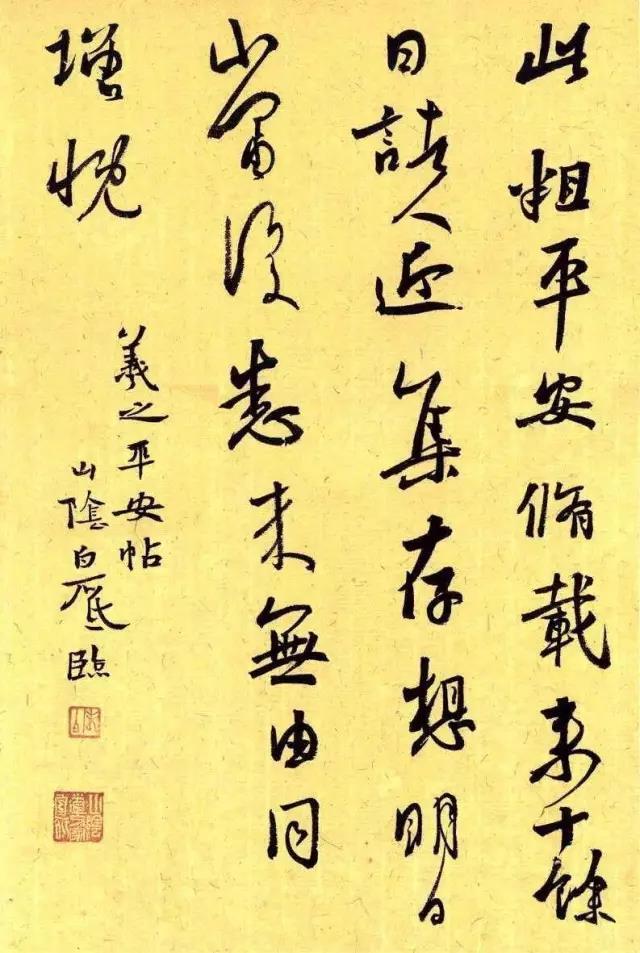 此粗平安脩載來十餘
日諸人近集存想明日
小當復悉來無由同
增慨
羲之平安帖
山陰白砥臨